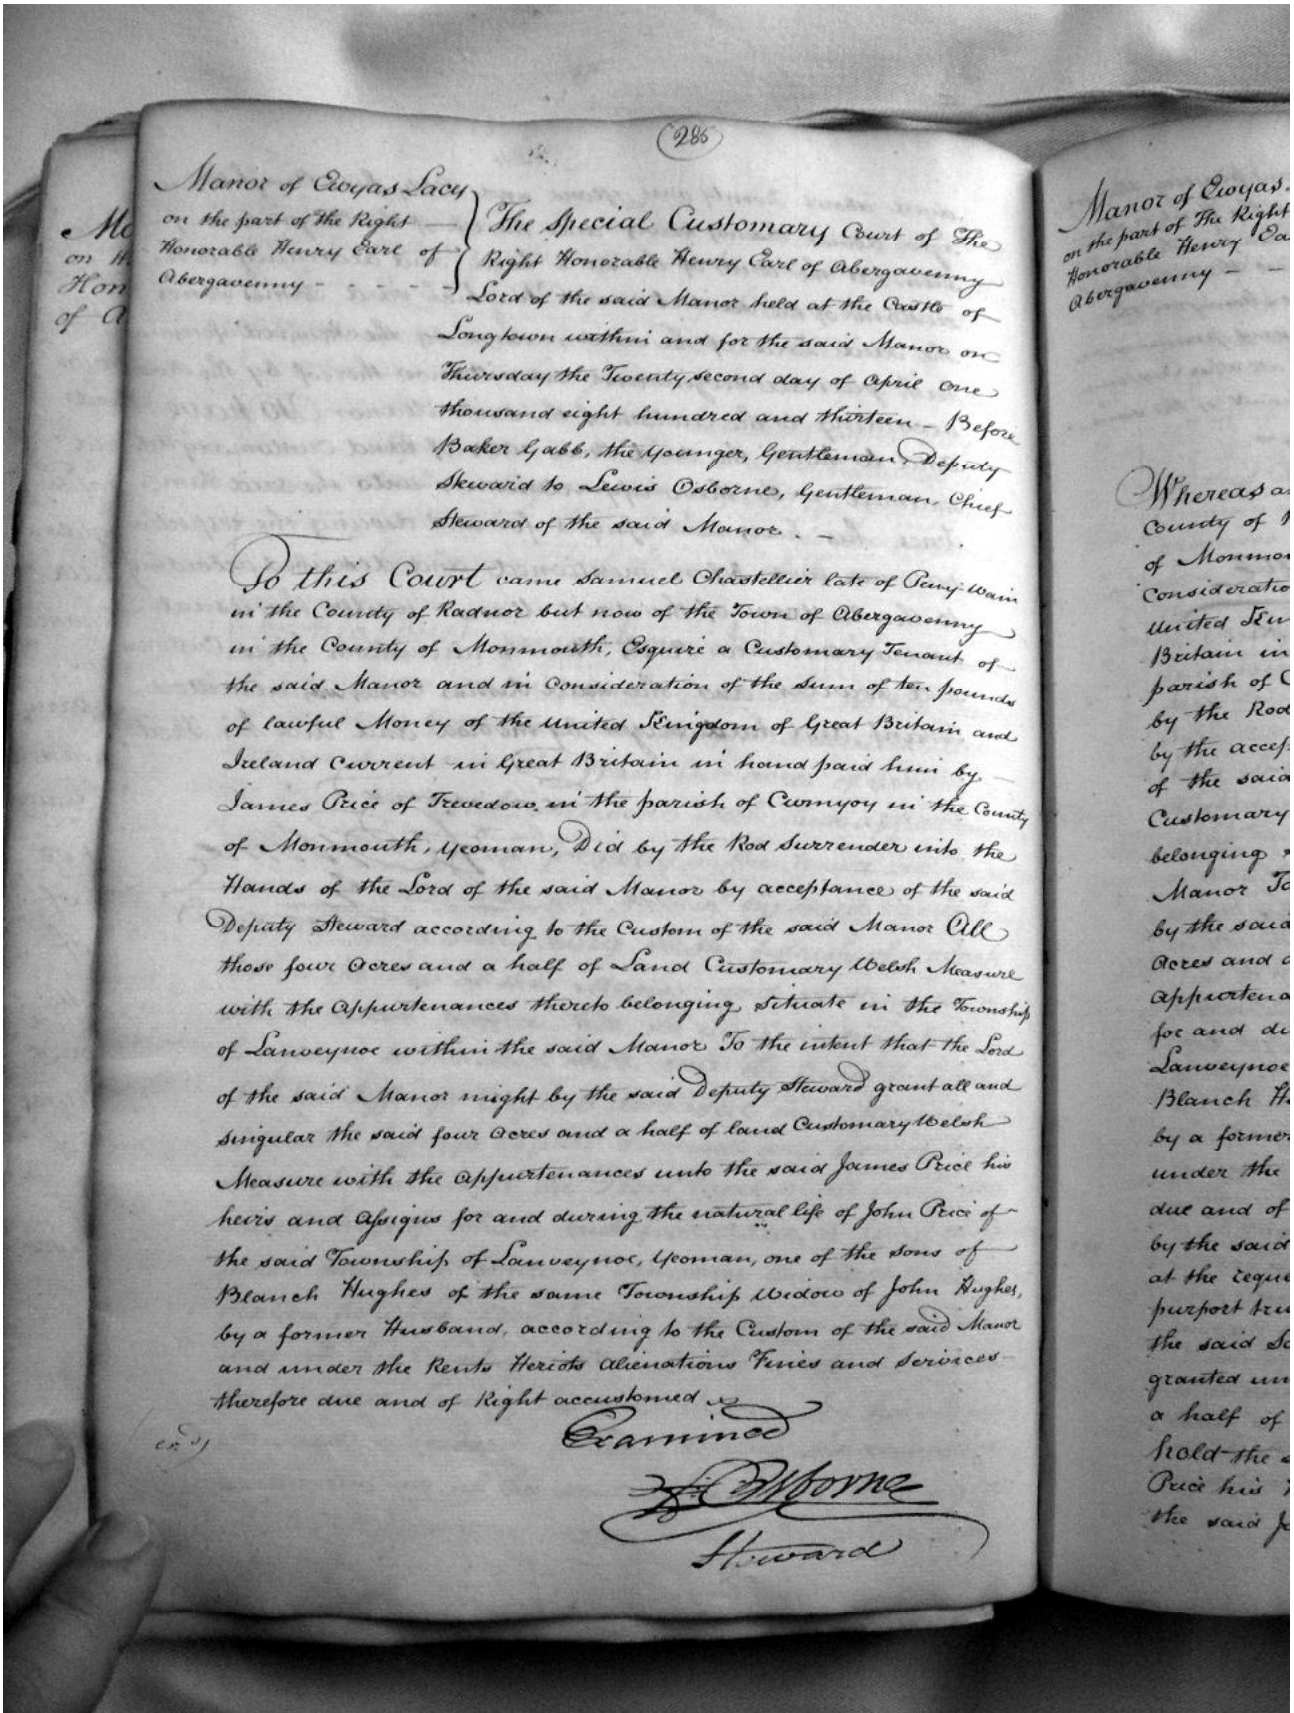 286
Manor of Ewyas Lacy
on the part of the Right
Honorable Henry Earl of
Abergavenny - - - - -
The Special Customary Court of The
Right Honorable Henry Earl of Abergavenny
Lord of the said Manor held at the Castle of
Longtown within and for the said Manor on
Thursday the Twenty second day of April One
thousand eight hundred and thirteen - Before
Baker Gabb, the younger, Gentleman, Deputy
Steward to Lewis Osborne, Gentleman, Chief
Steward of the said Manor. -
To this Court came Samuel Chastellier late of Peny-Wain
in the County of Radnor but now of the Town of Abergavenny
in the County of Monmouth, Esquire a Customary Tenant of
the said Manor and in Consideration of the Sum of ten pounds
of lawful Money of the United Kingdom of Great Britain and
Ireland Current in Great Britain in hand paid him by
James Price of Trevedow in the parish of Cwmyoy in the County
of Monmouth, yeoman, Did by the Rod Surrender into the
Hands of the Lord of the said Manor by acceptance of the said
Deputy Steward according to the Custom of the said Manor All
those four Acres and a half of Land Customary Welsh Measure
with the Appurtenances thereto belonging situate in the Township
of Lanveynoe within the said Manor To the intent that the Lord
of the said Manor might by the said Deputy Steward grant all and
singular the said four Acres and a half of land Customary Welsh
Measure with the Appurtenances unto the said James Price his
heirs and Assigns for and during the natural life of John Price of
the said Township of Lanveynoe, yeoman, one of the sons of
Blanch Hughes of the same Township Widow of John Hughes,
by a former Husband, according to the Custom of the said Manor
and under the Rents Heriots Alienations Fines and Services
therefore due and of Right accustomed
Examined
L. Osborne
Steward
Ma
on th
Hon
of A
Manor of Ewyas
on the part of The Right
Honorable Henry Ea
Abergavenny - -
Whereas a
County of
of Monmou
Consideratio
United Kin
Britain in
parish of C
by the Rod
by the accep
of the said
Customary
belonging
Manor To
by the said
Acres and a
appurtena
for and du
Lanveynoe
Blanch H
by a former
under the
due and of
by the said
at the reque
purport tru
the said Sa
granted un
a half of
hold the
Price his
the said Ja